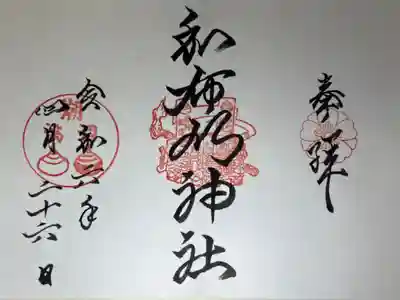 奉拝
和布刈神社
令和六年
四月二十六日